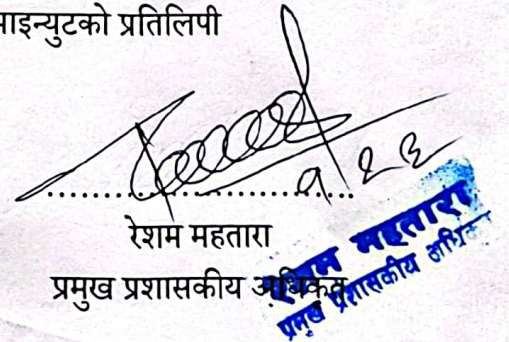 माइन्युटको प्रतिलिपी
..............................
रेशम महतारा
प्रमुख प्रशासकीय अधिकृत
महतारा
प्रमुख प्रशासकीय